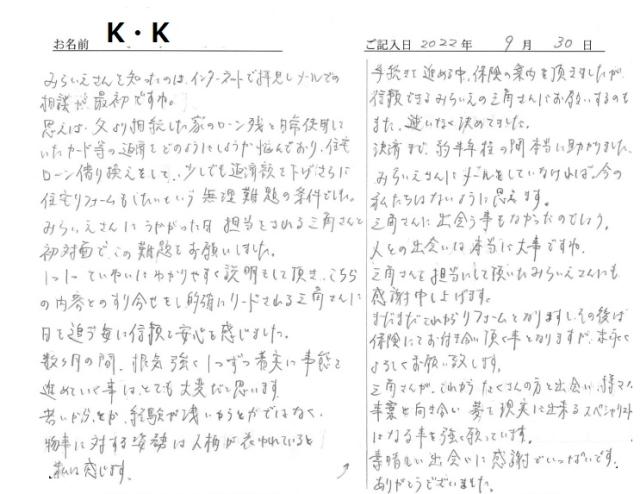 お名前 K・K
みらいえさんを知ったのは、インターネットで拝見しメールでの
相談が最初ですね。
思えば、父より相続した家のローン残と日常使用して
いたカード等の返済をどのようにしようか悩んでおり、住宅
ローン借り換えをして、少しでも返済額を下げ、さらに
住宅リフォームもしたいという無理難題の条件でした。
みらいえさんにうかがった日 担当をされる三角さんと
初対面で、この難題をお願いしました。
1つ1つていねいにわかりやすく説明をして頂き、こちら
の内容とのすり合せをし的確にリードされる三角さんに
日を追う毎に信頼と安心を感じました。
数ヶ月の間、根気強く1つずつ着実に事態を
進めていく事は、とても大変だと思います。
若いからとか、経験が浅いからとかではなく、
物事に対する姿勢は人柄が表われていると
私は感じます。
ご記入日 2022年 9月 30日
手続きを進める中、保険の案内を頂きましたが、
信頼できるみらいえの三角さんにお願いするのも
また、迷いなく決めてました。
決済まで、約半年程の間本当に助かりました。
みらいえさんにメールをしていなければ、今の
私たちはないように思えます。
三角さんに出会う事もなかったのでしょう。
人との出会いは本当に大事ですね。
三角さんを担当にして頂いたみらいえさんにも
感謝申し上げます。
まだまだこれからリフォームとなりますし、その後は
保険にてお付き合い頂く事となりますが、末永く
よろしくお願い致します。
三角さんが、これからたくさんの方と出会い、様々な
事業と向き合い 夢を現実に出来るスペシャリスト
になる事を強く願っています。
素晴しい出会いに感謝でいっぱいです。
ありがとうございました。